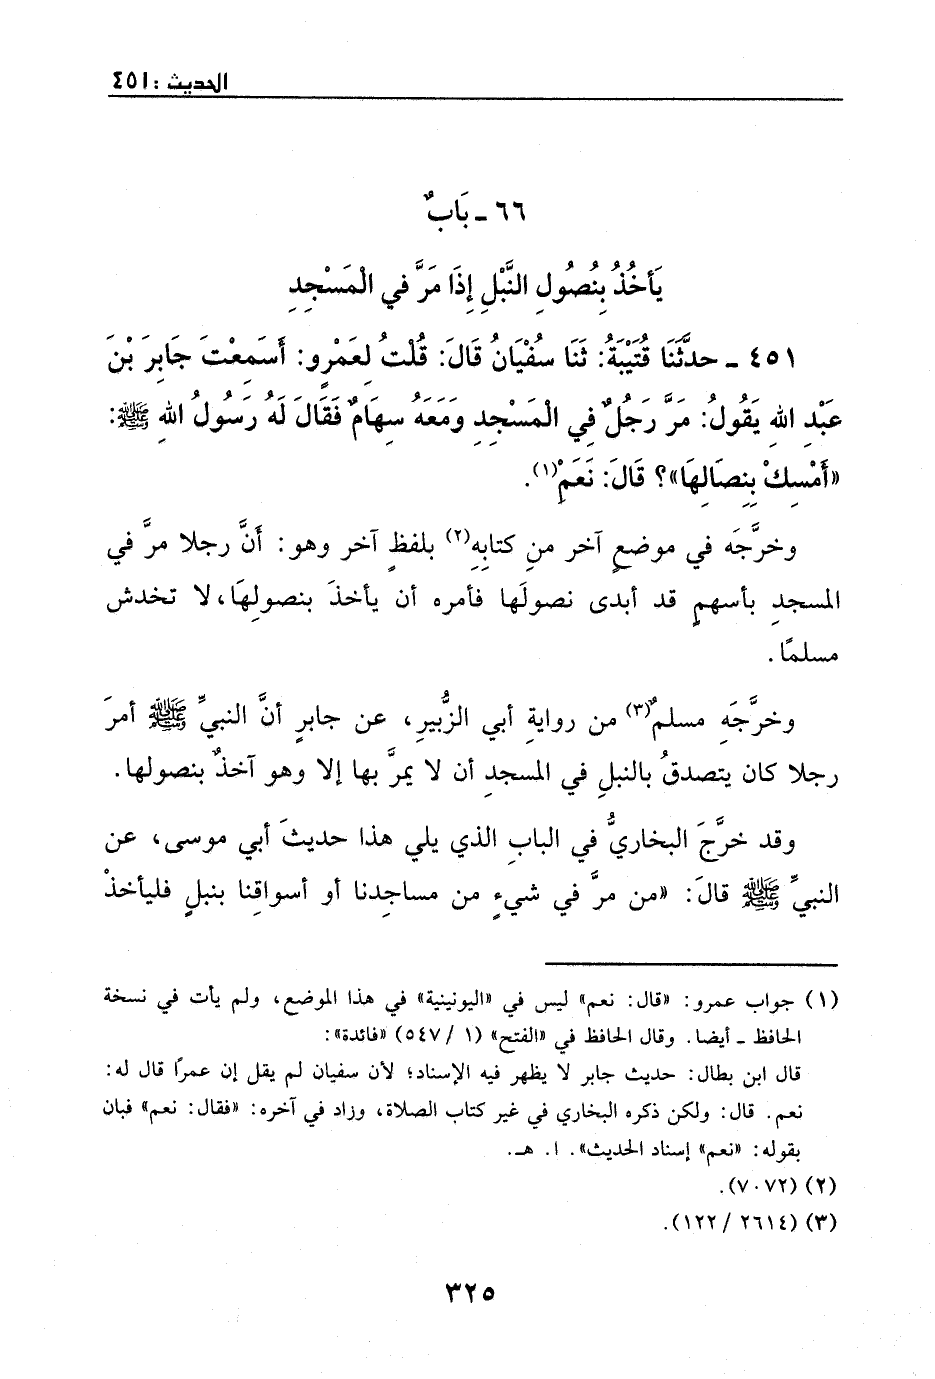 الحديث : ٤٥١
٦٦ ـ بَابٌ
يَأخُذُ بِنُصُولِ النَّبْلِ إِذَا مَرَّ فِي الْمَسْجِدِ
٤٥١ ـ حدَّثَنَا قُتَيْبَةُ: ثَنَا سُفْيَانُ قَالَ: قُلْتُ لِعَمْرٍو: أَسَمِعْتَ جَابِرَ بْنَ
عَبْدِ اللهِ يَقُولُ: مَرَّ رَجُلٌ فِي الْمَسْجِدِ وَمَعَهُ سِهَامٌ فَقَالَ لَهُ رَسُولُ اللهِ ﷺ:
«أَمْسِكْ بِنِصَالِهَا»؟ قَالَ: نَعَمْ(١).
وخرَّجَه في موضعٍ آخر منِ كتابِهِ(٢) بلفظٍ آخر وهو: أَنَّ رجلا مرَّ في
المسجدِ بأسهمٍ قد أبدى نصولَها فأمره أن يأخذَ بنصولِهَا، لا تخدش
مسلمًا.
وخرَّجَهِ مسلمٌ(٣) من روايةِ أبي الزُّبيرِ، عن جابرٍ أنَّ النبيَّ ﷺ أمرَ
رجلا كان يتصدقُ بالنبلِ في المسجدِ أن لا يمرَّ بها إلا وهو آخذٌ بنصولها.
وقد خرَّجَ البخاريُّ في البابِ الذي يلي هذا حديثَ أبي موسى، عن
النبيِّ ﷺ قالَ: «من مرَّ في شيءٍ من مساجدِنا أو أسواقِنا بنبلٍ فليأخذْ
(١) جواب عمرو: «قال: نعم» ليس في «اليونينية» في هذا الموضع، ولم يأت في نسخة
الحافظ ـ أيضا. وقال الحافظ في «الفتح» (١ / ٥٤٧) «فائدة»:
قال ابن بطال: حديث جابر لا يظهر فيه الإسناد؛ لأن سفيان لم يقل إن عمرًا قال له:
نعم. قال: ولكن ذكره البخاري في غير كتاب الصلاة، وزاد في آخره: «فقال: نعم» فبان
بقوله: «نعم» إسناد الحديث». ا. هـ.
(٢) (٧٠٧٢).
(٣) (٢٦١٤ / ١٢٢).
٣٢٥